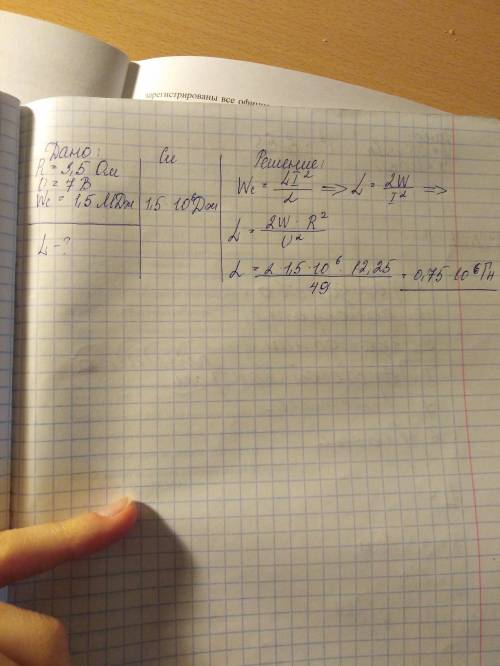 зарегистрированы все
Дано:
R = 3,5 Ом
U = 7 В
Wс = 1,5 МДж
L = ?
Си
1,5 · 10⁶ Дж
Решение:
Wс = LI²/2 => L = 2W/I² =>
L = 2W · R²/U²
L = 2 · 1,5 · 10⁶ · 12,25/49 = 0,75 · 10⁶ Гн